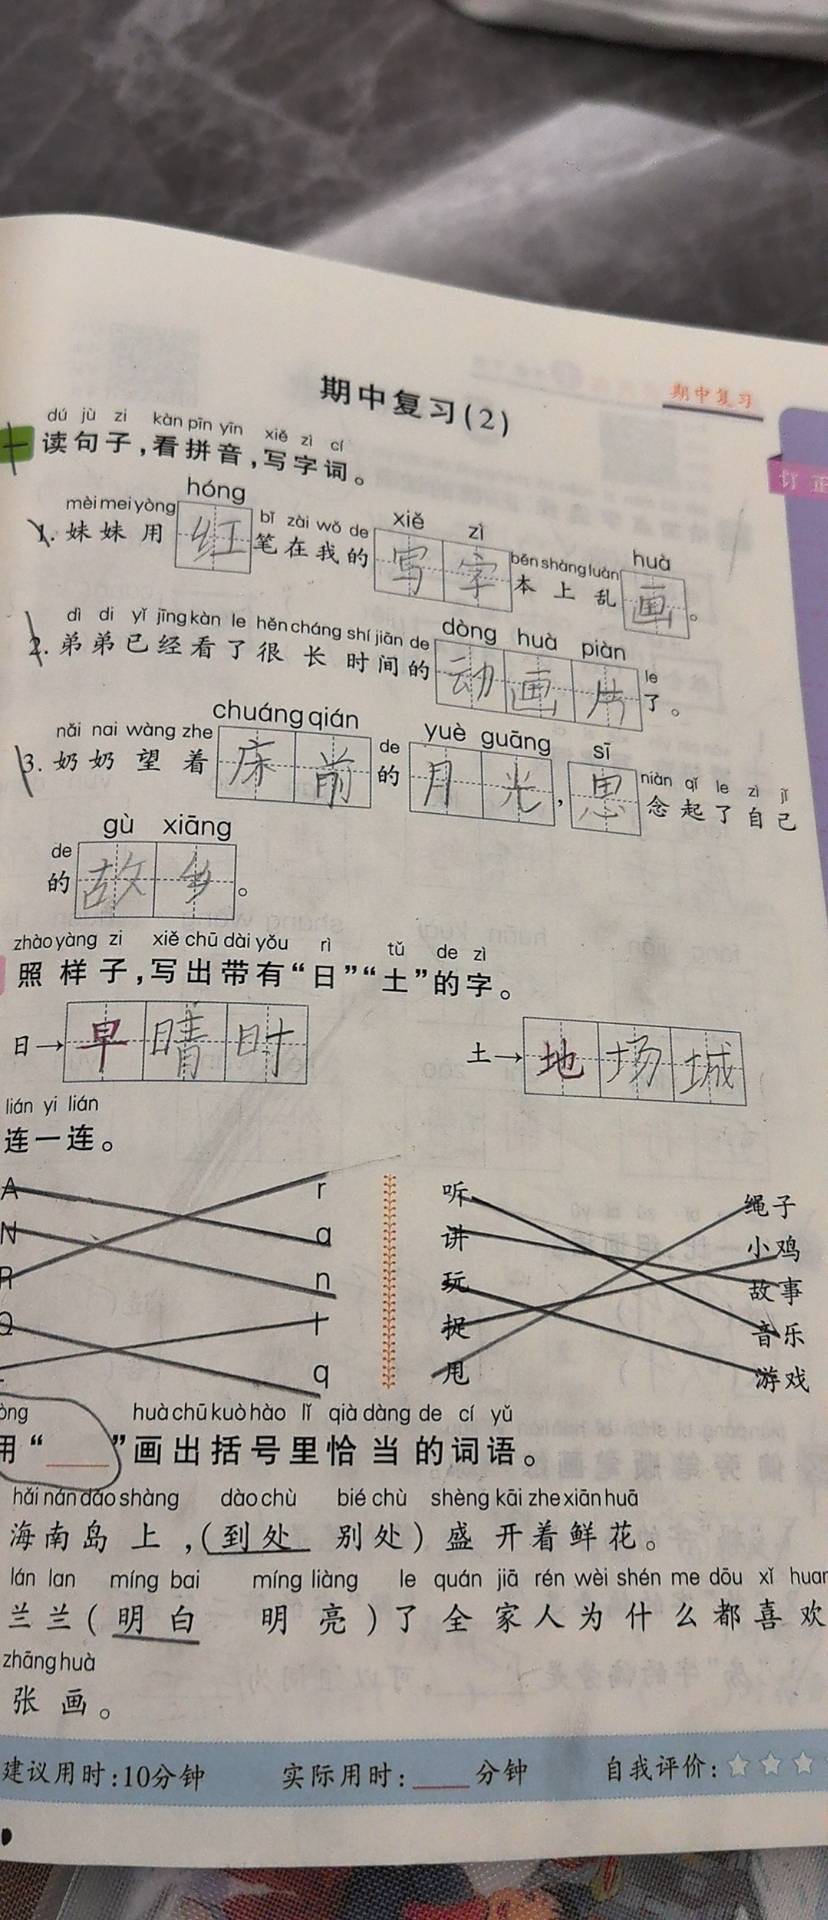 期中复习
期中复习(2)
订正
dú jù zi kàn pīn yīn xiě zì cí
一 读句子,看拼音,写字词。
mèi mei yòng hóng bǐ zài wǒ de xiě zì běn shàng luàn huà
1. 妹妹用红笔在我的写字本上乱画。
dì di yǐ jīng kàn le hěn cháng shí jiān de dòng huà piàn le
2. 弟弟已经看了很长时间的动画片了。
nǎi nai wàng zhe chuáng qián de yuè guāng sī niàn qǐ le zì jǐ
3. 奶奶望着床前的月光,思念起了自己
de gù xiāng
的故乡。
zhào yàng zi xiě chū dài yǒu rì tǔ de zì
照样子,写出带有“日”“土”的字。
日→早晴时 土→地场城
lián yi lián
连一连。
A r 听 绳子
N a 讲 小鸡
R n 玩 故事
Q t 捉 音乐
q 甩 游戏
huà chū kuò hào lǐ qià dàng de cí yǔ
用“____”画出括号里恰当的词语。
hǎi nán dǎo shàng dào chù bié chù shèng kāi zhe xiān huā
海南岛上,(到处 别处)盛开着鲜花。
lán lan míng bai míng liàng le quán jiā rén wèi shén me dōu xǐ huan
兰兰(明白 明亮)了全家人为什么都喜欢
zhāng huà
张画。
建议用时:10分钟 实际用时:____分钟 自我评价:☆☆☆